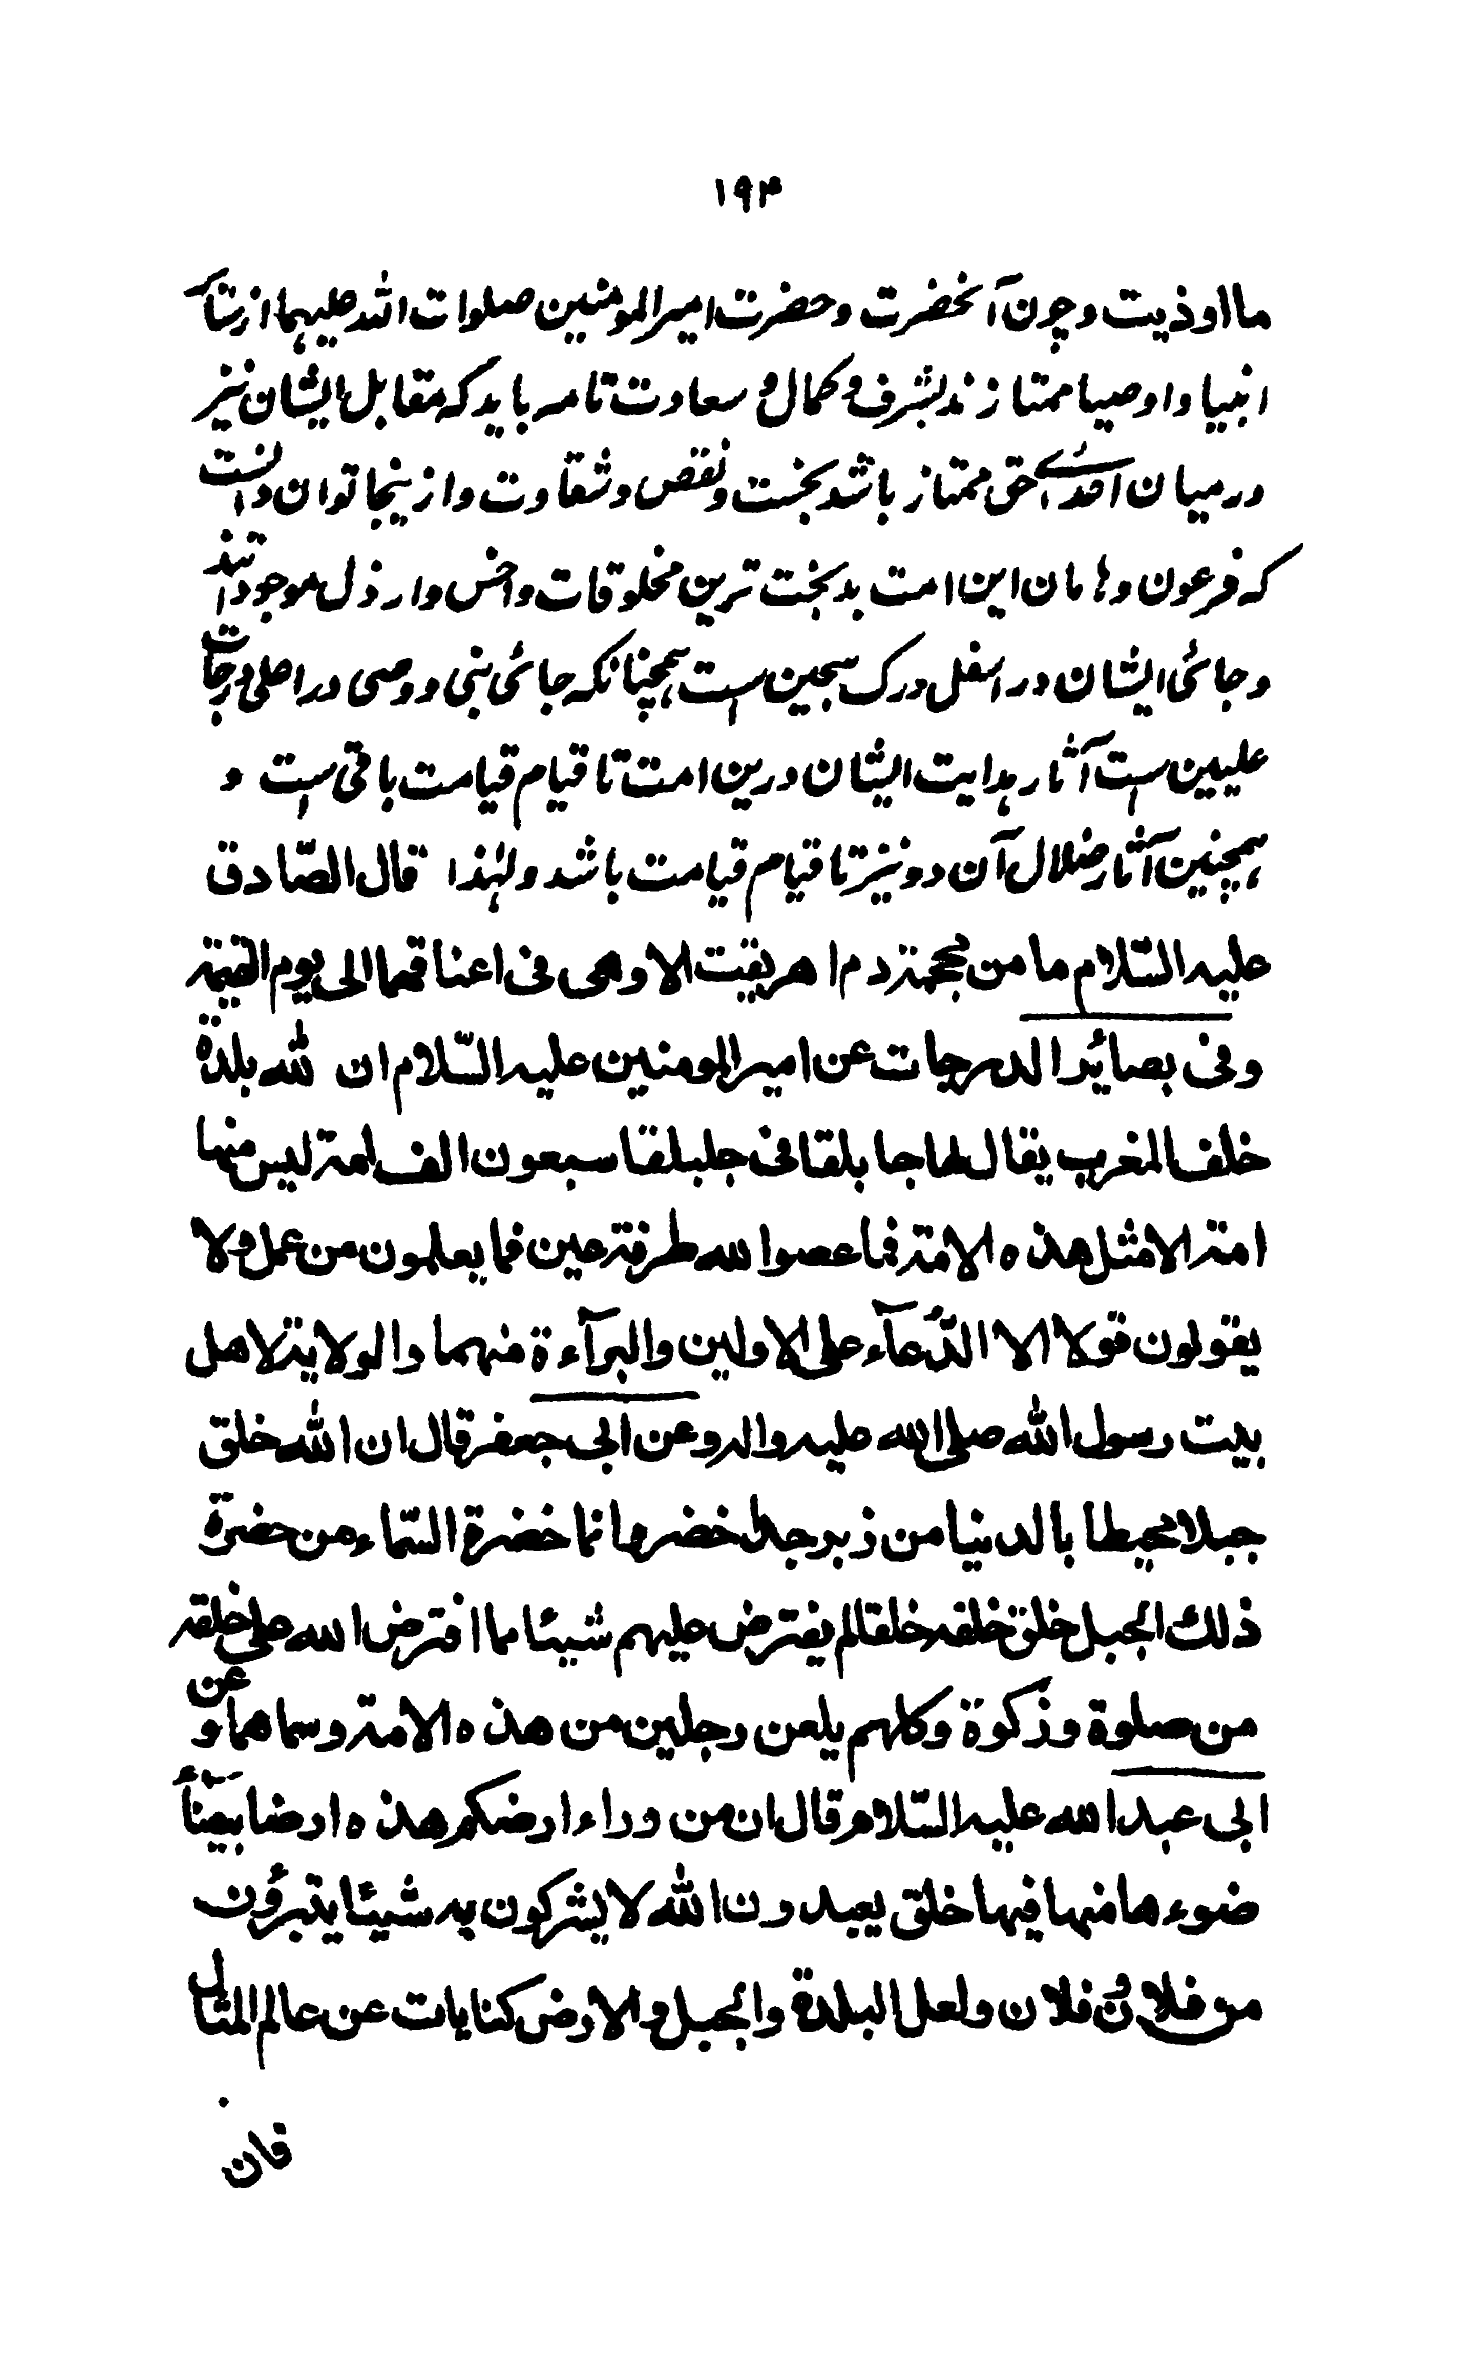 ۱۹۴
ما اوذیت و چون آنحضرت و حضرت امیرالمومنین صلوات الله علیهما از سائر
انبیا و اوصیا ممتازند بشرف و کمال و سعادت تامه باید که مقابل ایشان نیز
در میان اعدای حق ممتاز باشد بخست و نقص و شقاوت و ازینجا توان دانست
که فرعون و هامان این امت بدبخت ترین مخلوقات و اخس و ارذل موجوداتند
و جائی ایشان در اسفل درک سجین ست همچنانکه جائی نبی و وصی در اعلی درجات
علیین ست آثار هدایت ایشان درین امت تا قیام قیامت باقی ست و
همچنین آثار ضلال آن دو نیز تا قیام قیامت باشد ولهذا قال الصّادق
علیه السّلام ما من محجمة دم اهریقت الا وهی فی اعناقهما الی یوم القیمة
وفی بصائر الدرجات عن امیرالمومنین علیه السّلام ان لله بلدة
خلف المغرب یقال لها جابلقا فی جلبلقا سبعون الف امة لیس منها
امة الا مثل هذه الامة فما عصوا لله طرفة عین فما یعلمون من عمل ولا
یقولون قولا الا الدّعآء علی الاولین والبرآءة منهما والولایة لاهل
بیت رسول الله صلی الله علیه واله وعن ابی جعفر قال ان الله خلق
جبلا محیطا بالدنیا من زبرجد خضر وانما خضرة السّماء من خضرة
ذلك الجبل خلق خلفه خلقا لم یفترض علیهم شیئا مما افترض الله علی خلقه
من صلوة وذکوة وکلهم یلعن رجلین من هذه الامة وسماهما و عن
ابی عبد الله علیه السّلام قال ان من وراء ارضکم هذه ارضا بیضاء
ضوءها منها فیها خلق یعبدون الله لا یشرکون به شیئا یتبرؤن
من فلان فلان ولعل البلدة والجبل والارض کنایات عن عالم المثال
فان